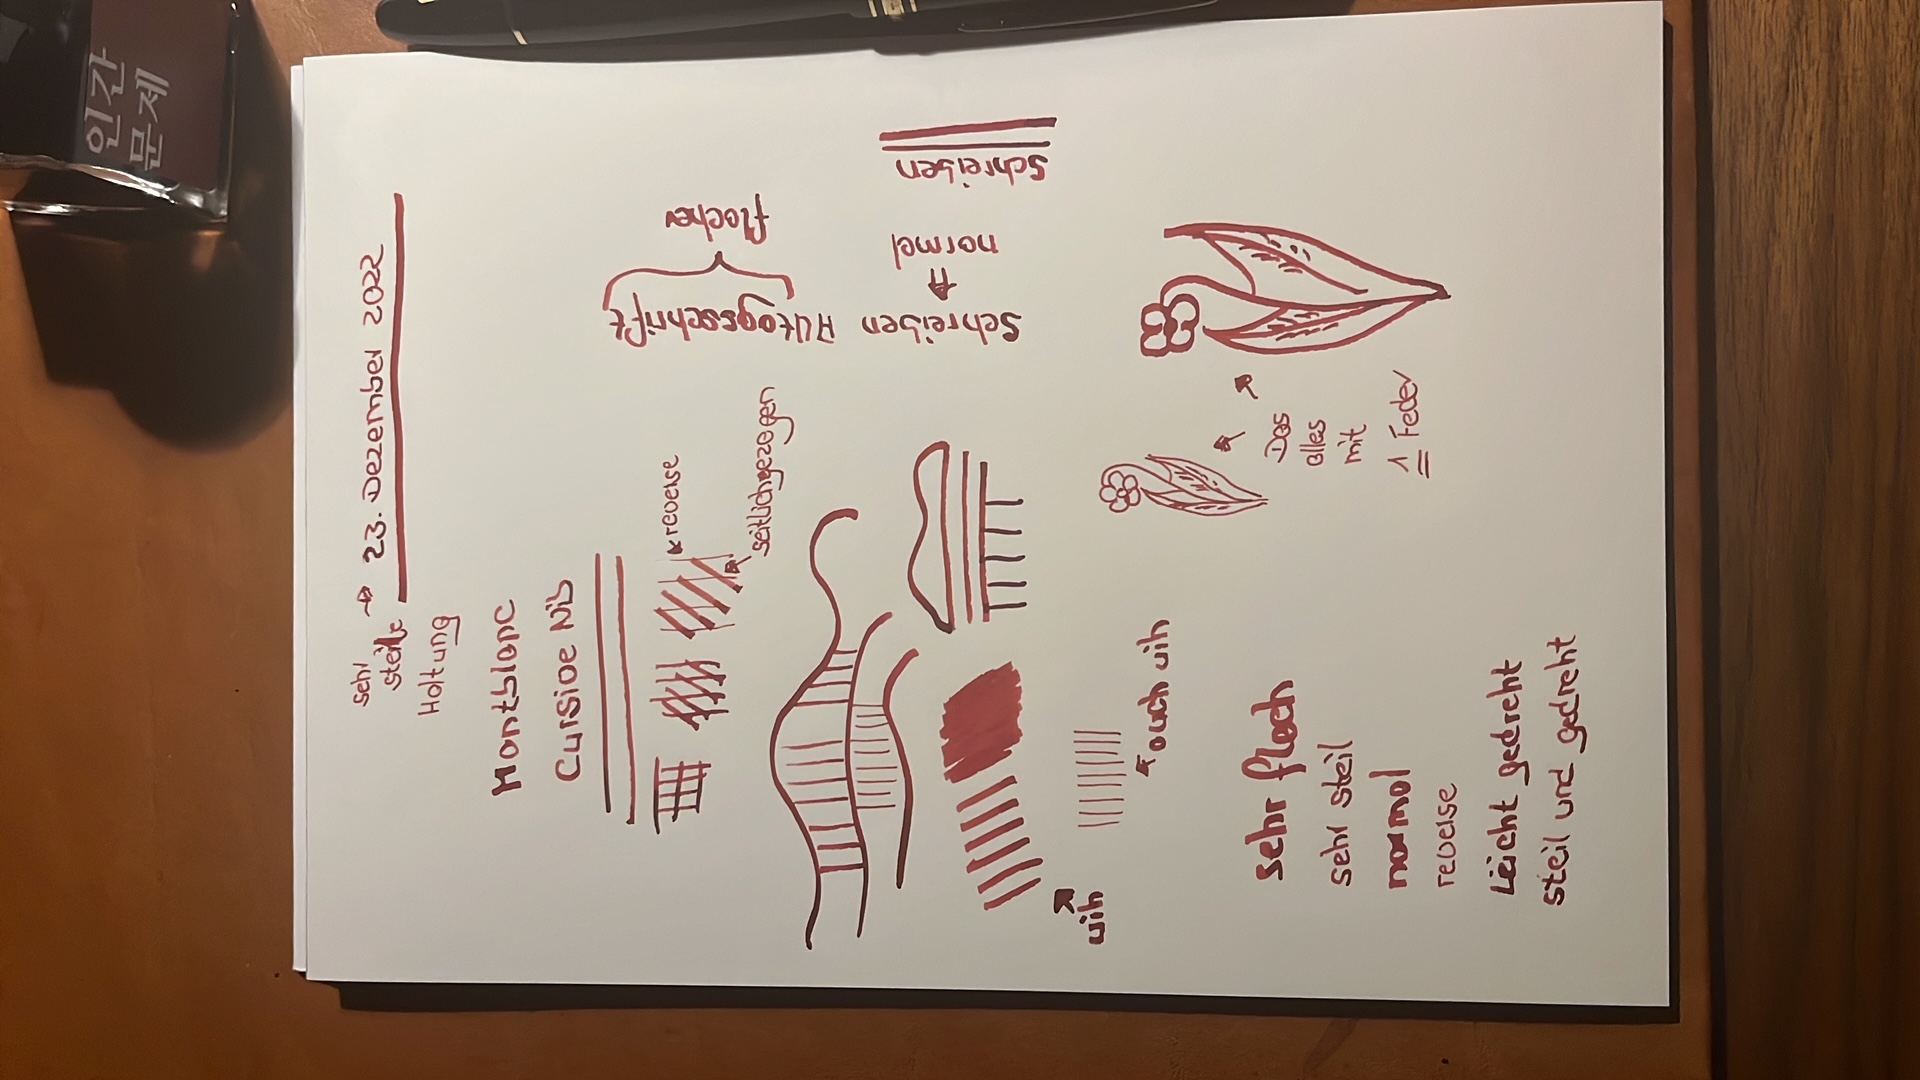 인간
문제
23. Dezember 2022
sehr
steile
Haltung
Montblanc
Cursive Nib
reverse
seitlich gezogen
Alltagsschrift
flacher
Schreiben
normal
Schreiben
Das
alles
mit
1 Feder
auch ich
ich
sehr flach
sehr steil
normal
reverse
Leicht gedreht
steil und gedreht